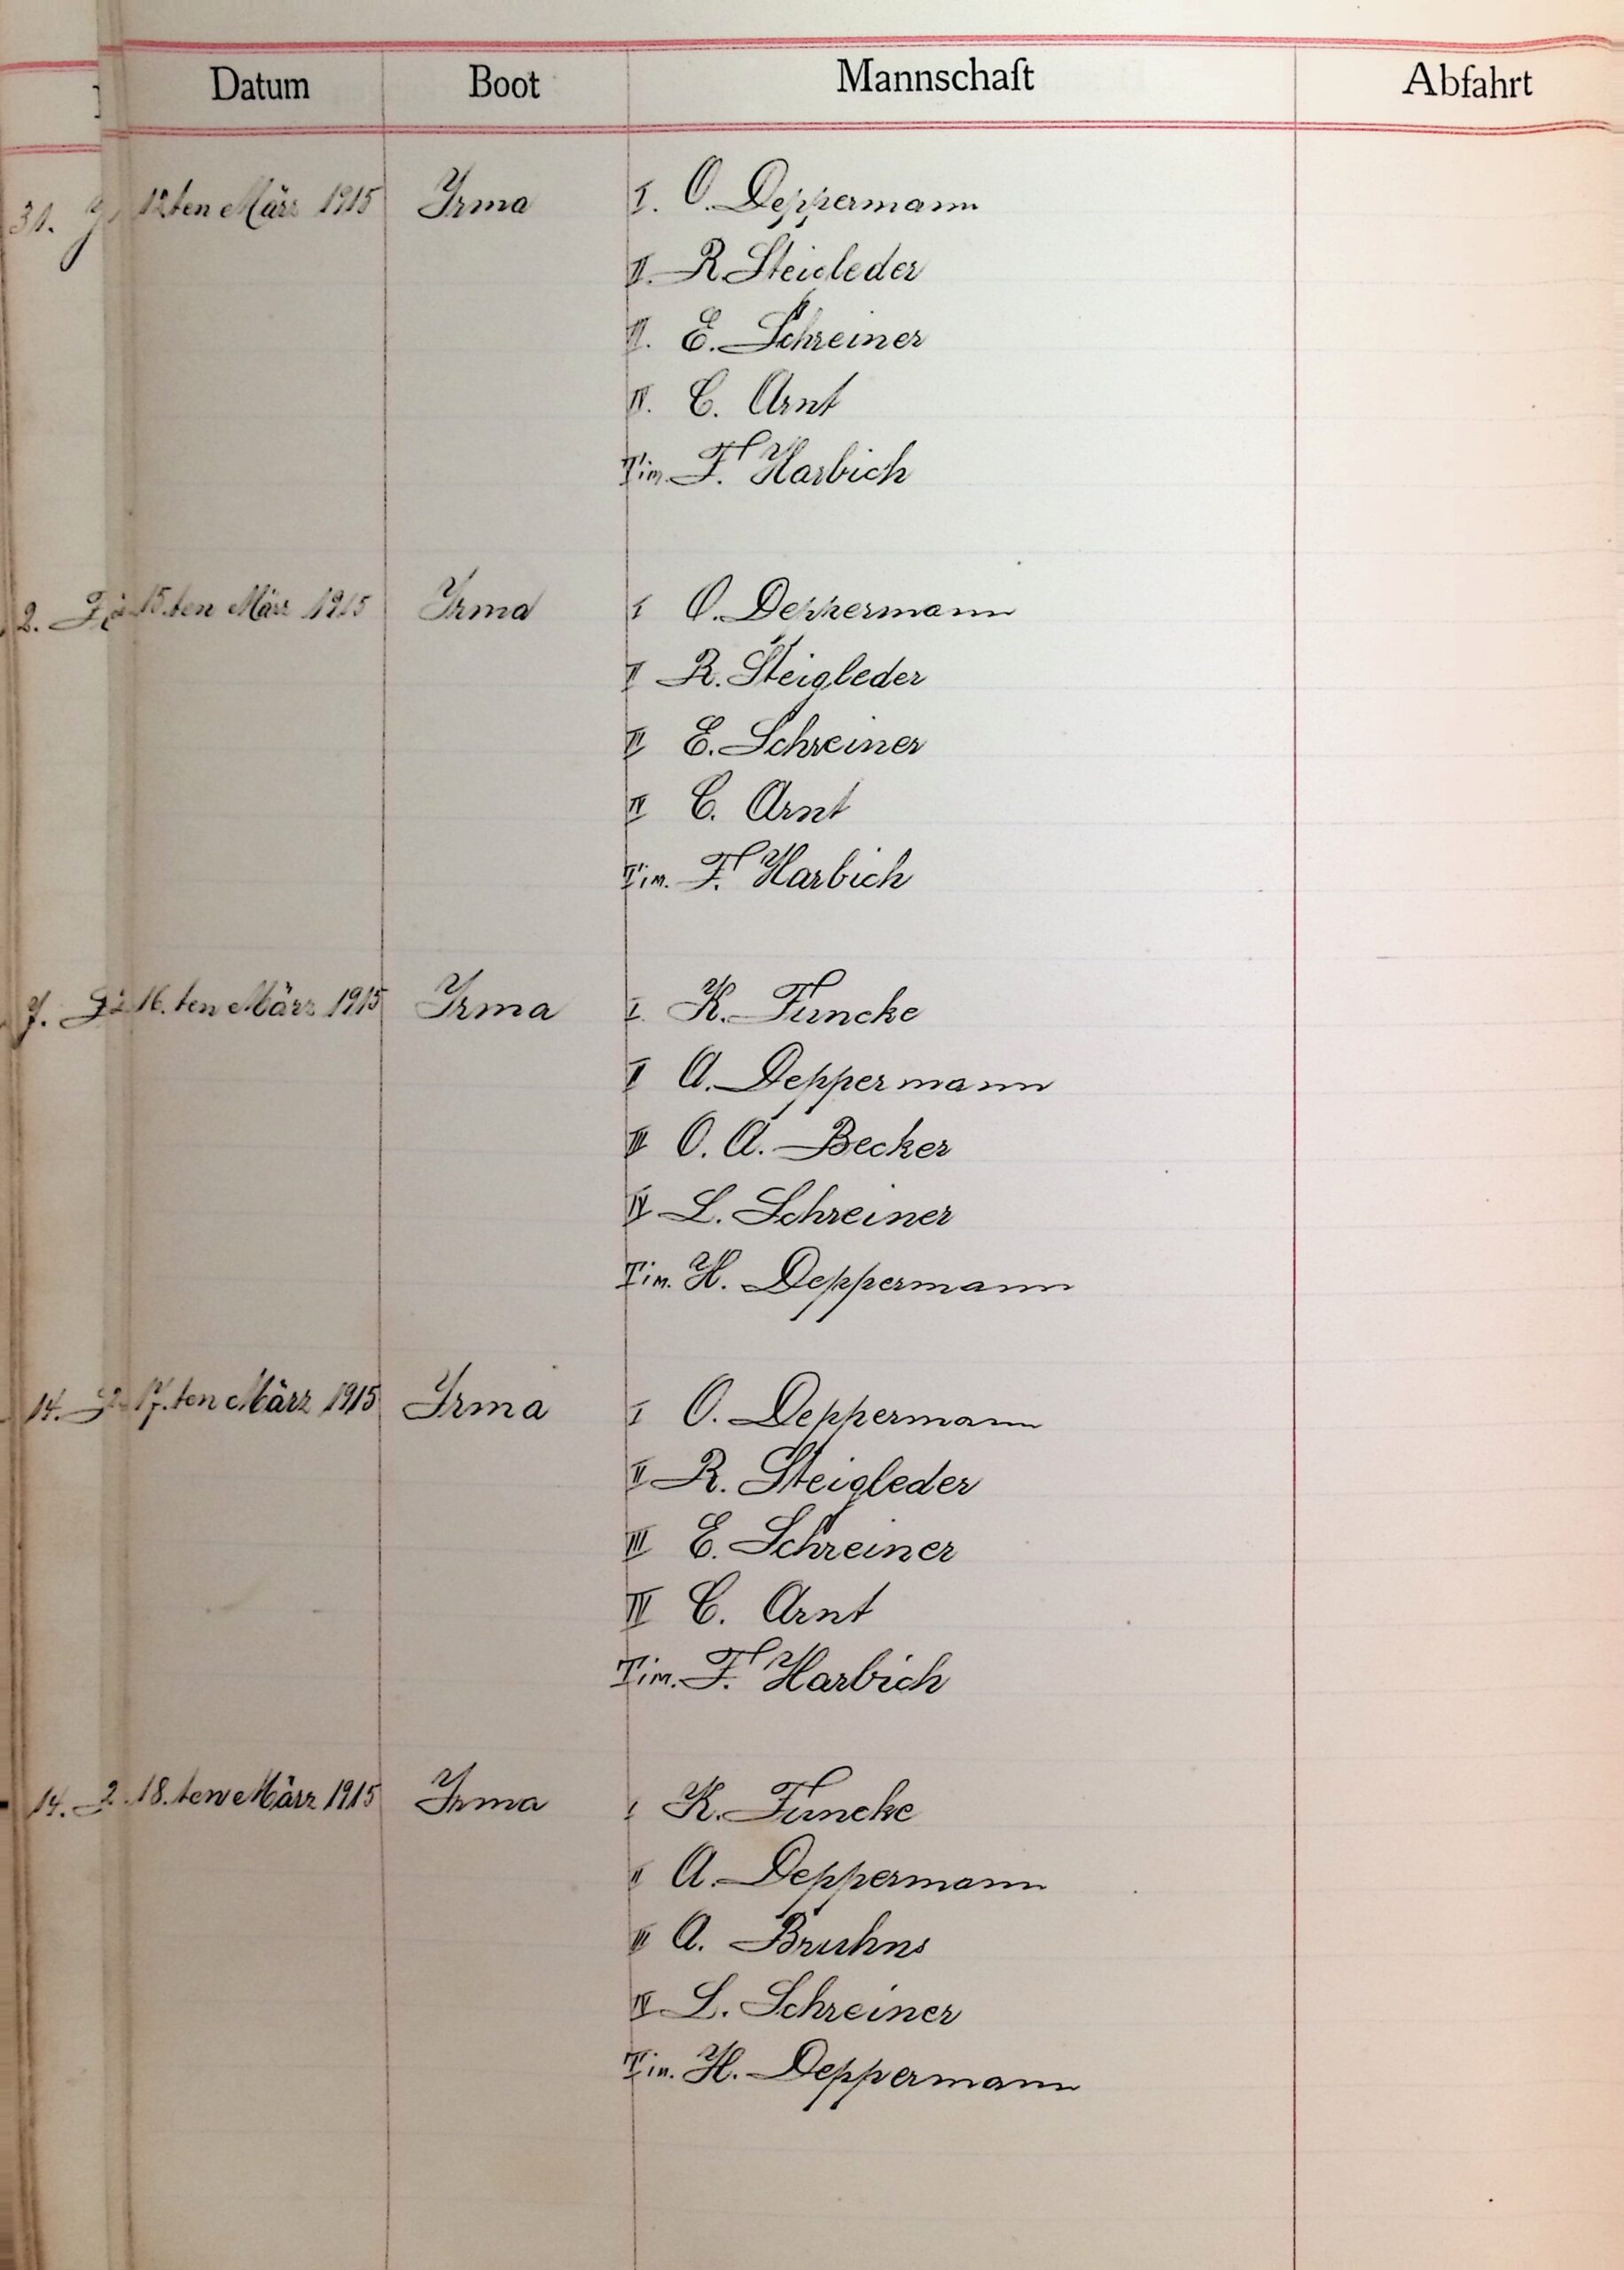 Datum Boot Mannschaft Abfahrt
12ten März 1915 Irma I. O. Deppermann
II. R. Steigleder
III. E. Schreiner
IV. C. Arnt
Tim. F. Harbich
15.ten März 1915 Irma I O. Deppermann
II R. Steigleder
III E. Schreiner
IV C. Arnt
Tim. F. Harbich
16.ten März 1915 Irma I. K. Funcke
II A. Deppermann
III O. A. Becker
IV L. Schreiner
Tim. H. Deppermann
17.ten März 1915 Irma I O. Deppermann
II R. Steigleder
III E. Schreiner
IV C. Arnt
Tim. F. Harbich
18.ten März 1915 Irma I K. Funcke
II A. Deppermann
III A. Bruhns
IV L. Schreiner
Tim. H. Deppermann
31.
2.
7.
14.
14.